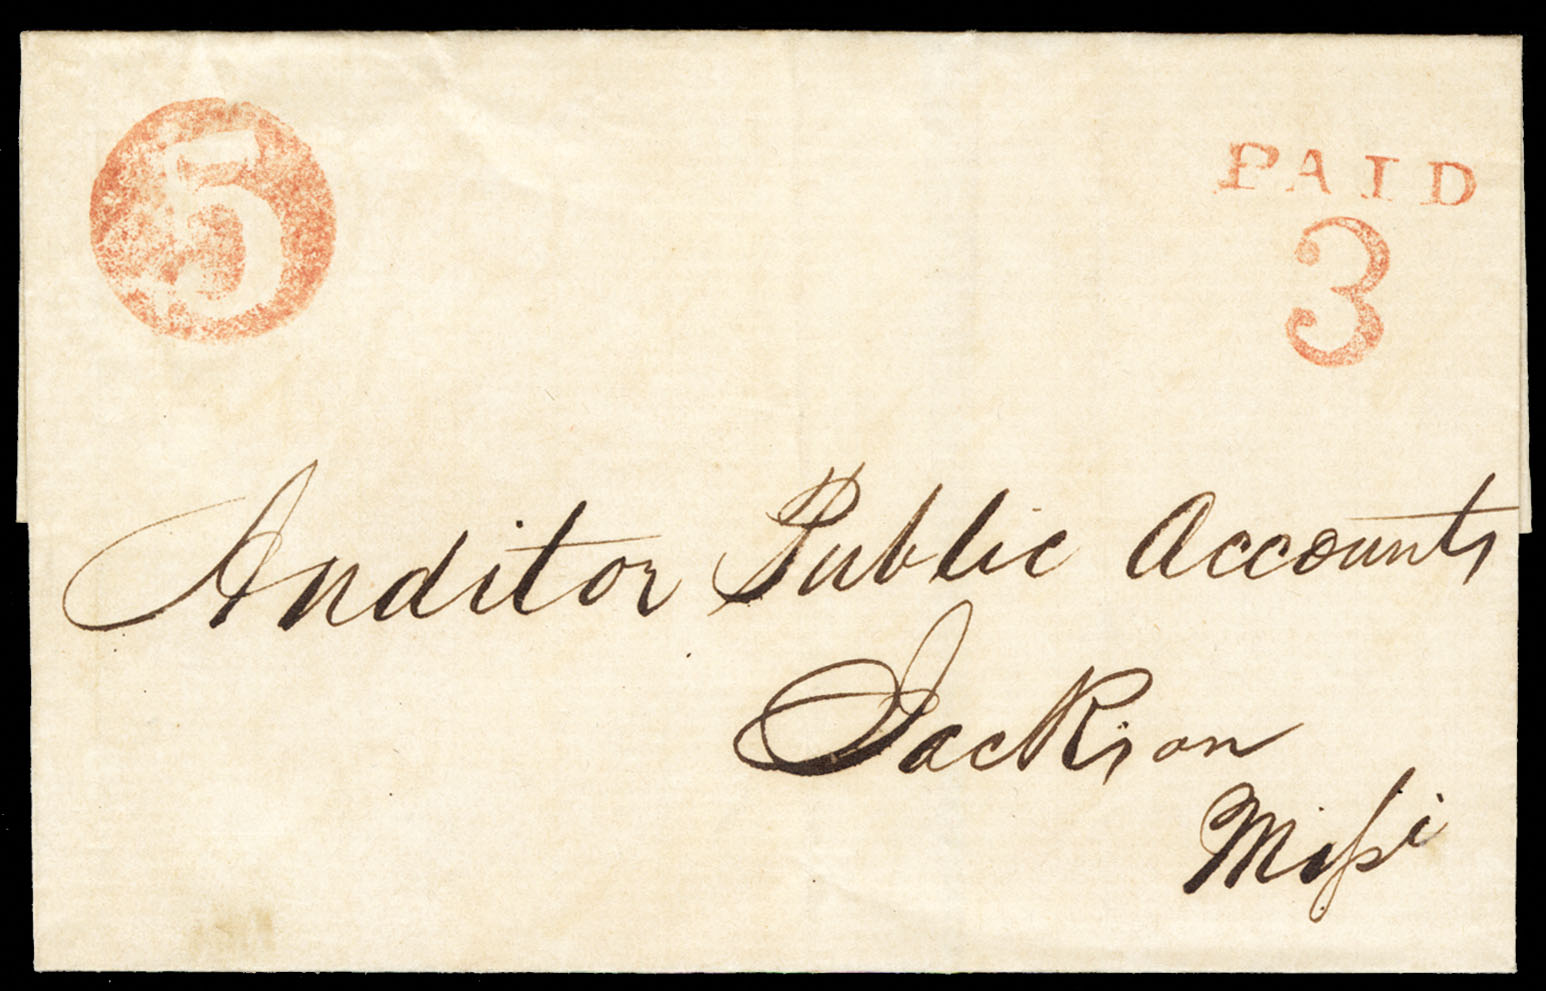 5
PAID
3
Auditor Public Accounts
Jackson
Missi